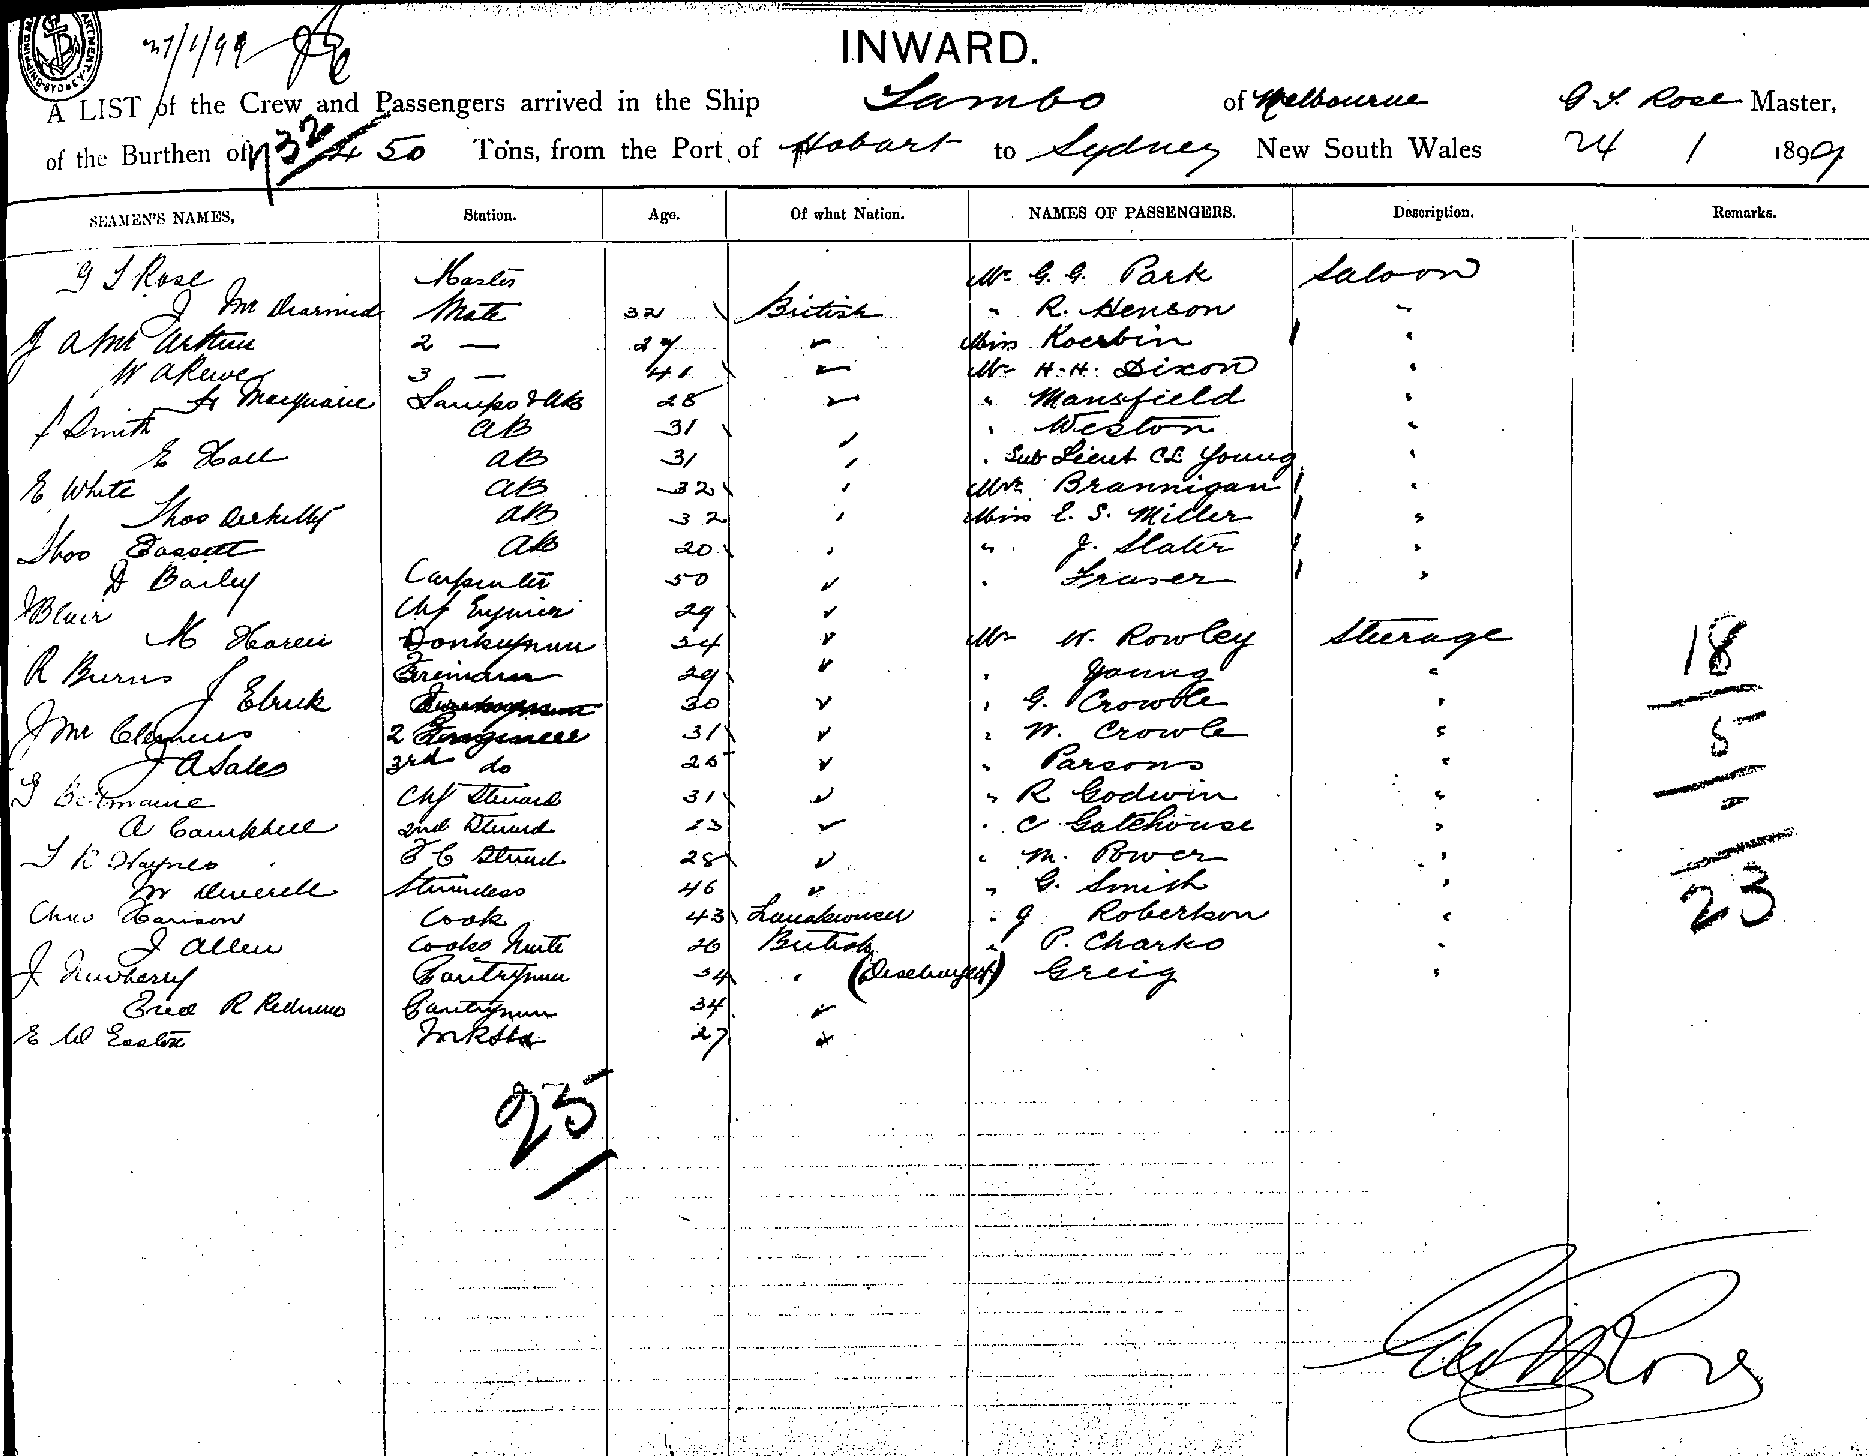 27/1/99
INWARD.
A LIST of the Crew and Passengers arrived in the Ship Sambo of Melbourne G S Rose Master,
of the Burthen of 450 Tons, from the Port of Hobart to Sydney New South Wales 24 1 1899
SEAMEN'S NAMES, Station. Age. Of what Nation. NAMES OF PASSENGERS. Description. Remarks.
G S Rose Master Mr G. G. Park Saloon
J Mc Diarmid Mate 32 British " R. Henson "
J A Mc Arthur 2 — 27 " Miss Koerbin "
W A 3 — 41 " Mr H. H. Dixon "
Macquarie Lamps & AB 28 " " Mansfield "
J Smith AB 31 " " Weston "
E Hall AB 31 " " Sub Lieut CL Young "
E White AB 32 " Mrs Brannigan "
Thos AB 32 " Miss E. S. Miller "
Thos Bassett AB 20 " " J. Slater "
D Bailey Carpenter 50 " " Fraser "
J Blair Chf Engineer 29 "
M Donkeyman 34 " Mr W. Rowley Steerage 18
R Burns Fireman 29 " " Young "
J 30 " " G. Crowle "
J Mc Clemens 2 Engineer 31 " " W. Crowle " 5
J A Sales 3rd do 25 " " Parsons "
Chf Steward 31 " " R Godwin "
A Campbell 2nd Steward 23 " " C Gatehouse "
T R Haynes F C Steward 28 " " M. Power "
M Deverell Stewardess 46 " " G. Smith " 23
Chas Harrison Cook 43 " J Robertson "
J Allen Cooks Mate 20 British " P. Charko "
J Newberry Pantryman 34 " (Discharged) Greig "
Fred R Pantryman 34 "
E W Easton 27 "
25
Geo S Rose